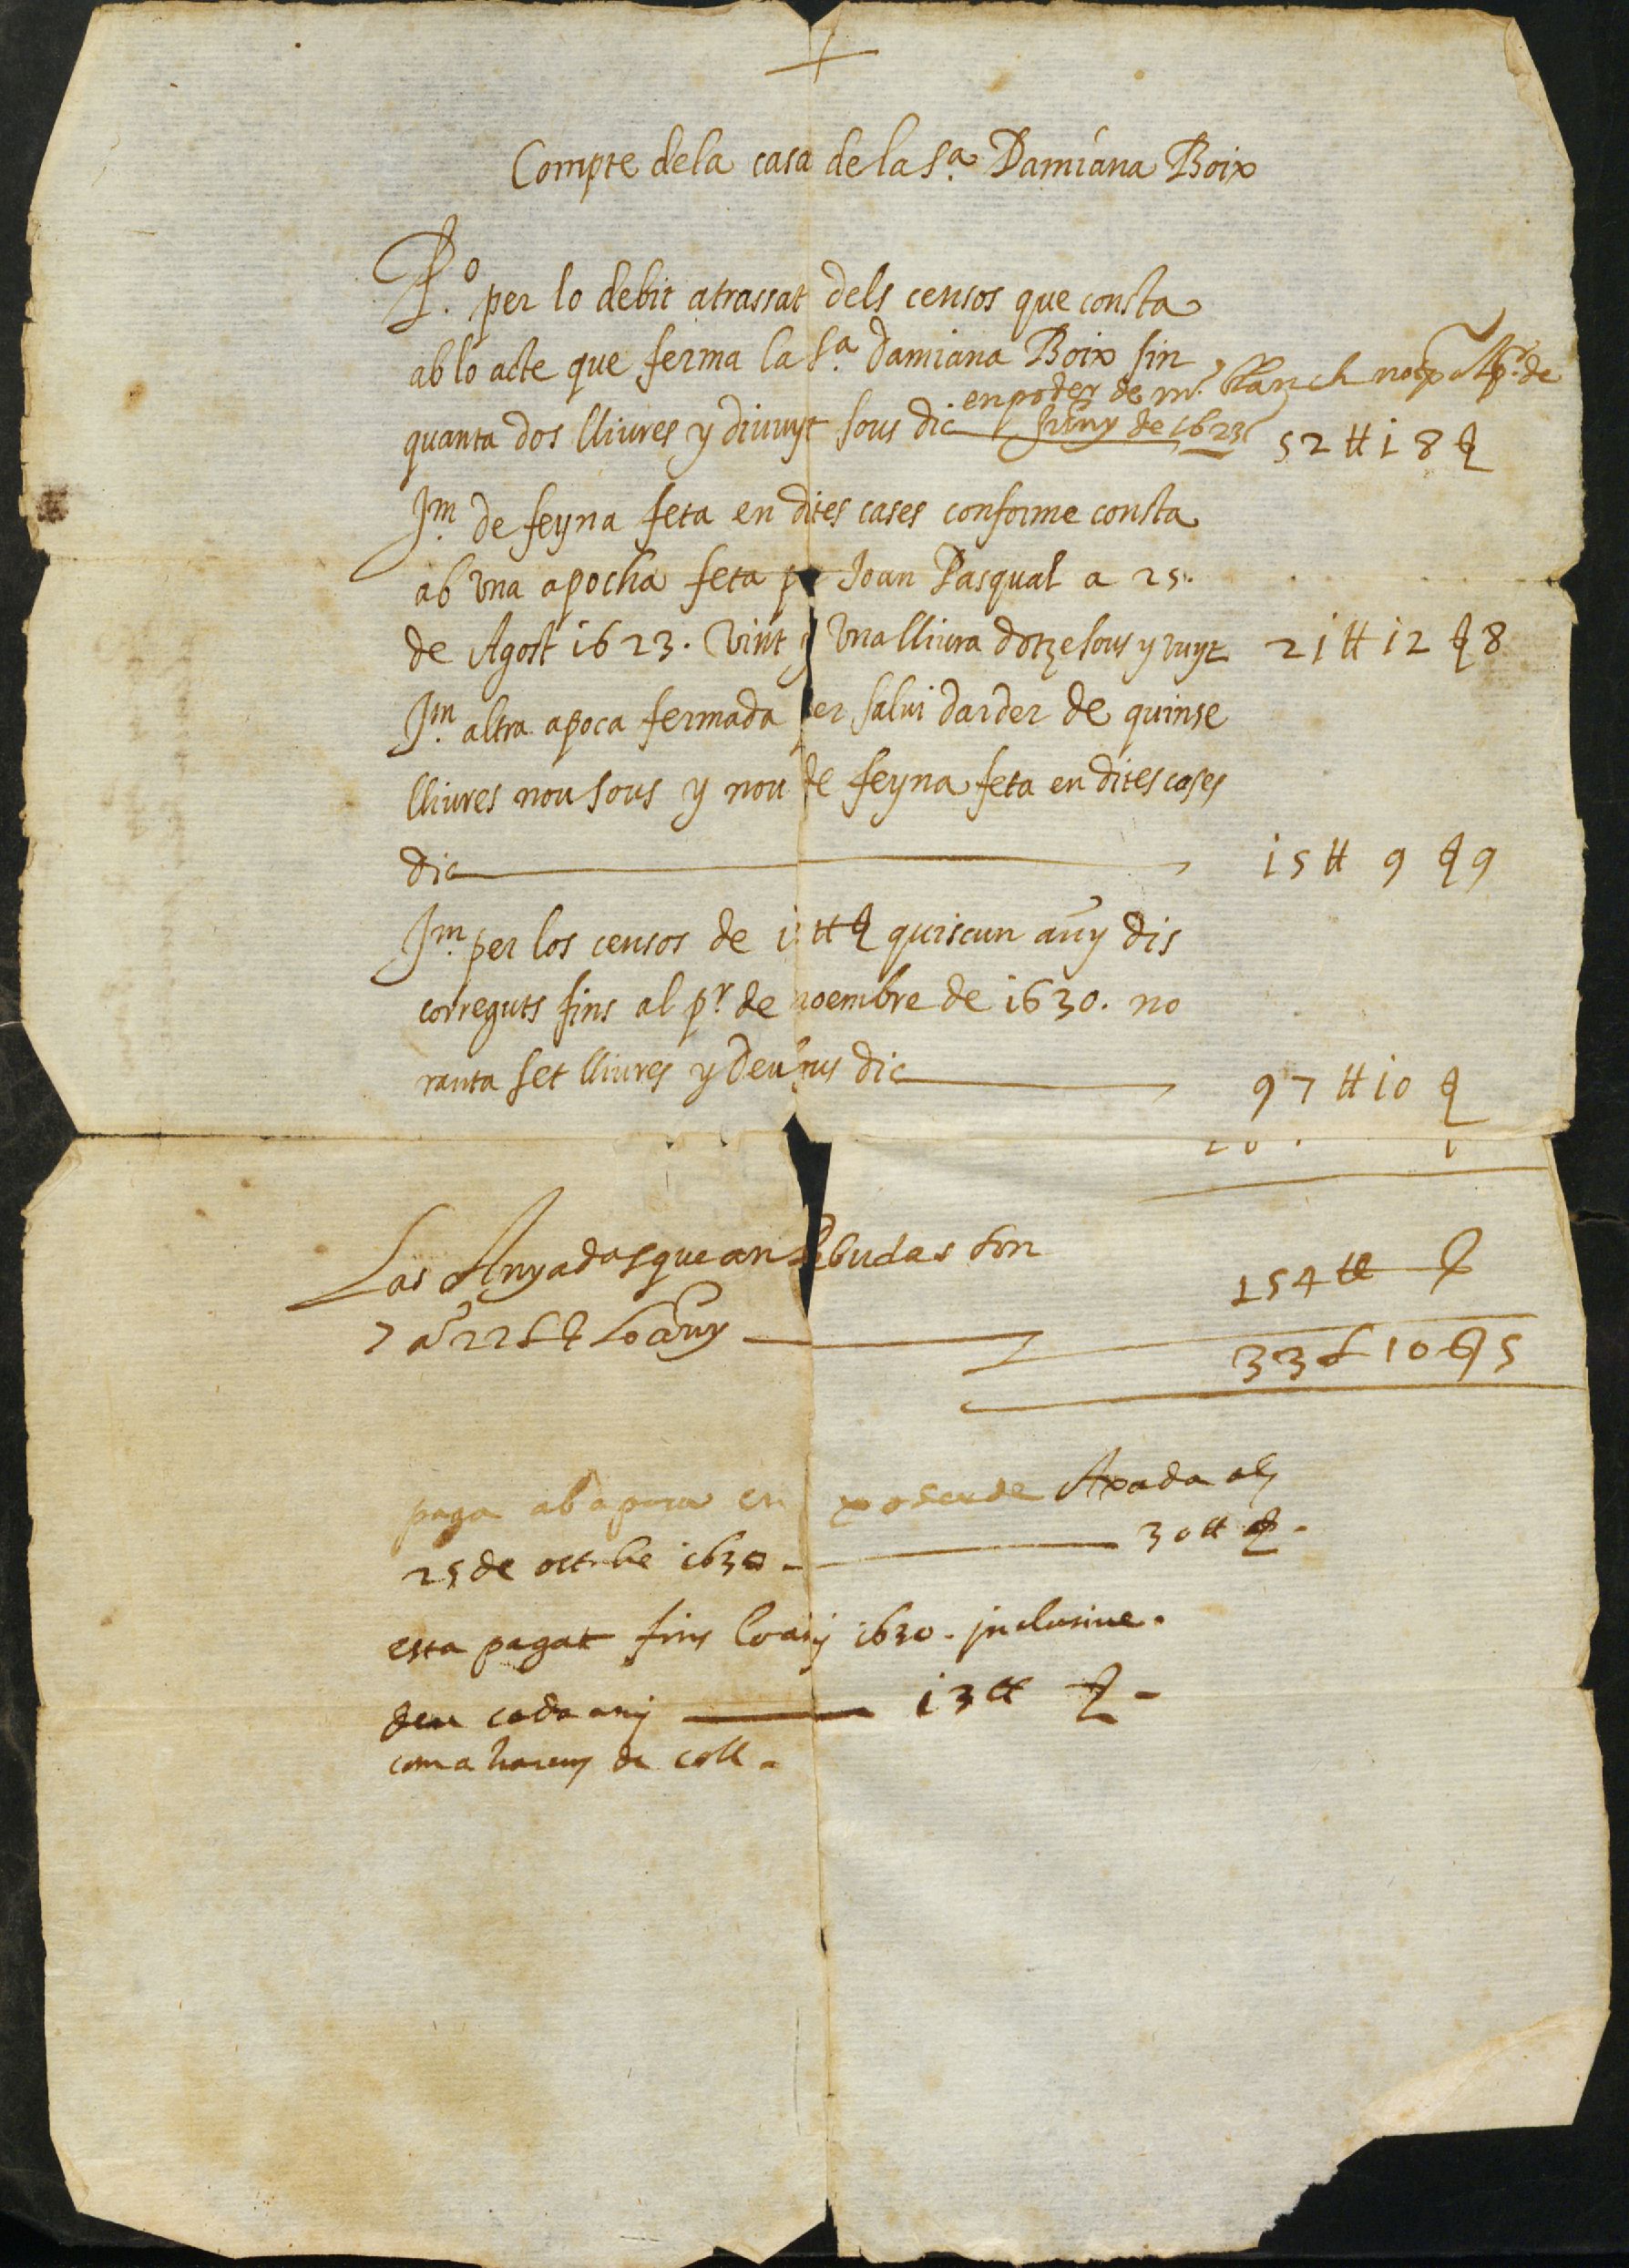 Compte dela casa de la S.ª Damiana Boix
P.º per lo debit atrassat dels censos que consta
ab lo acte que ferma la S.ª Damiana Boix sin
en poder de m.º Planch
quanta dos lliures y divuyt sous dic Juny de 1623 52 ⁜ 18 ß
Jm. de feyna feta en dites cases conforme consta
ab una apocha feta Joan Pasqual a 25.
de Agost 1623. Vint y Una lliura dotze sous y vuyt 21 ⁜ 12 ß 8
Jm. altra apoca fermada per salvi darder de quinse
lliures nou sous y nou de feyna feta en dites cases
dic 15 ⁜ 9 ß 9
Jm. per los censos de ⁜ ß quiscun any dis
correguts fins al pr. de noembre de 1630. no
ranta set lliures y deu sus dic 97 ⁜ 10 ß
Las Anyadas que an Rebudas son
154 ⁜ ß
7 a 22 £ ß lo any
33 £ 10 ß 5
paga ab apoca en Axada als
25 de octubre 1630. 30 ⁜ ß.
esta pagat fins lo any 1630. inclusive.
deu cada any 13 ⁜ ß
com a hereu de Coll.